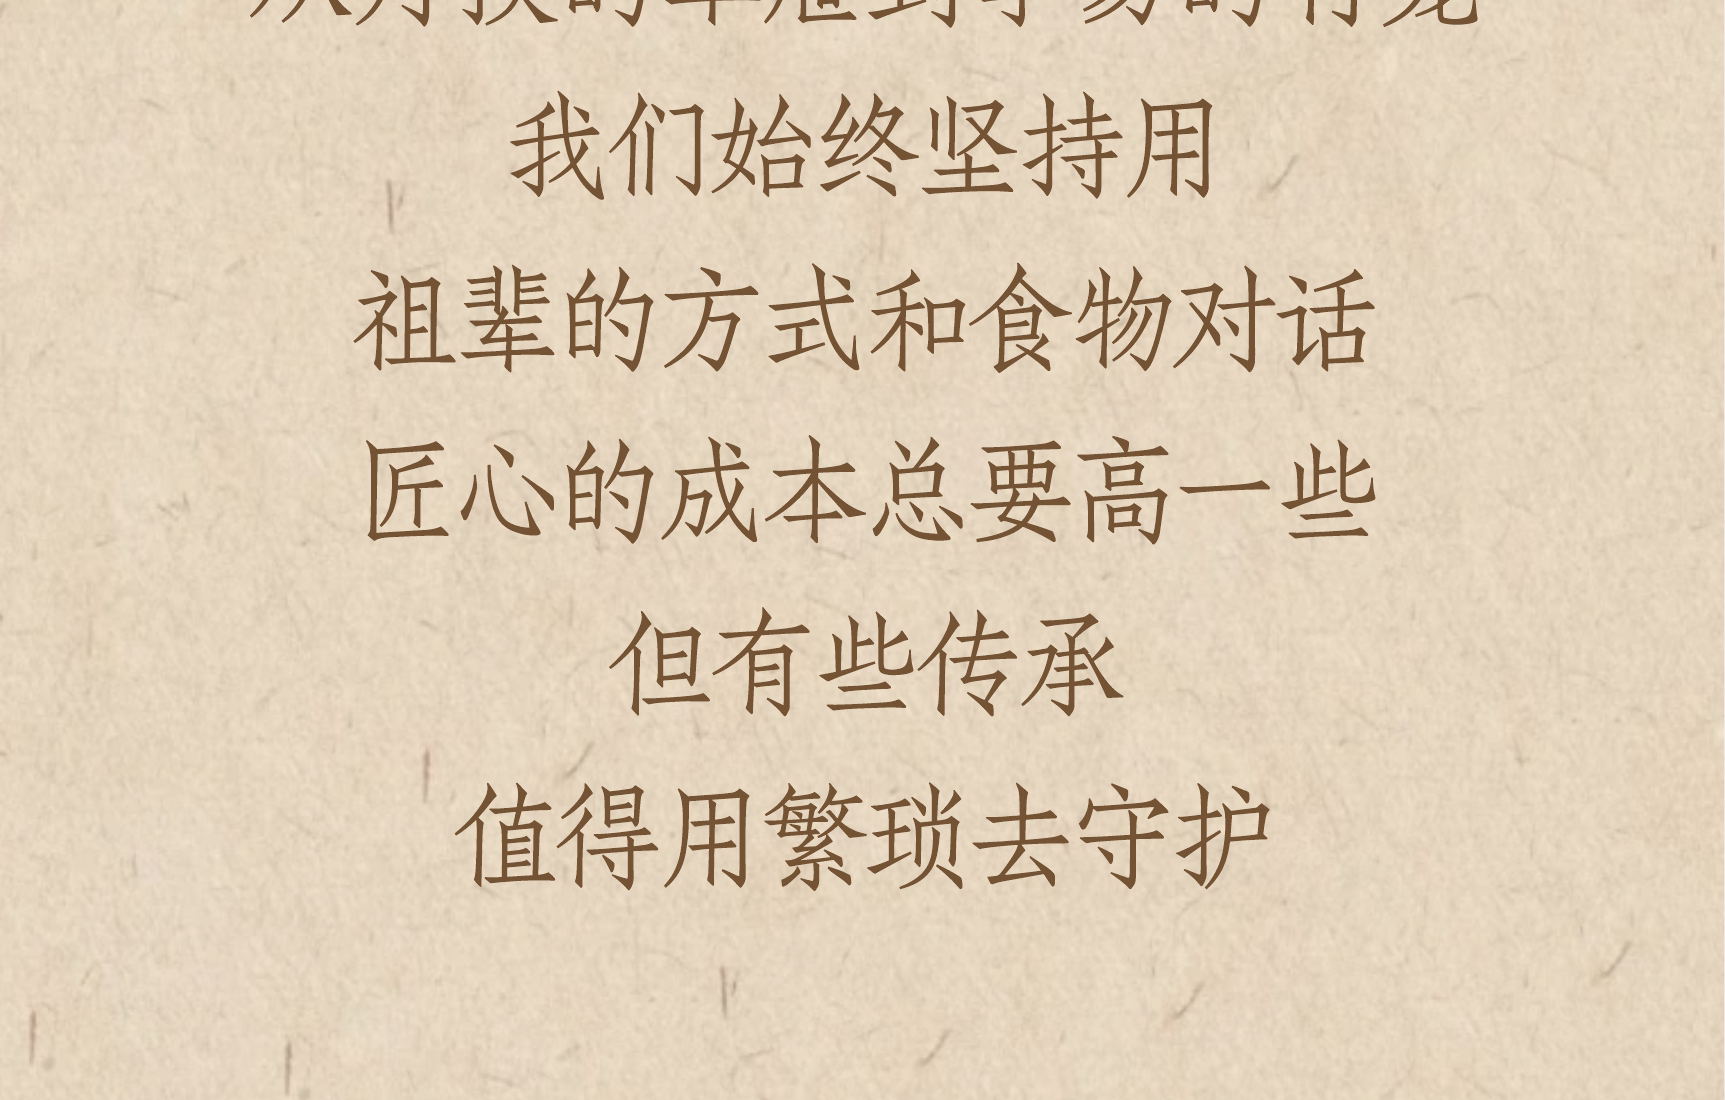 我们始终坚持用
祖辈的方式和食物对话
匠心的成本总要高一些
但有些传承
值得用繁琐去守护